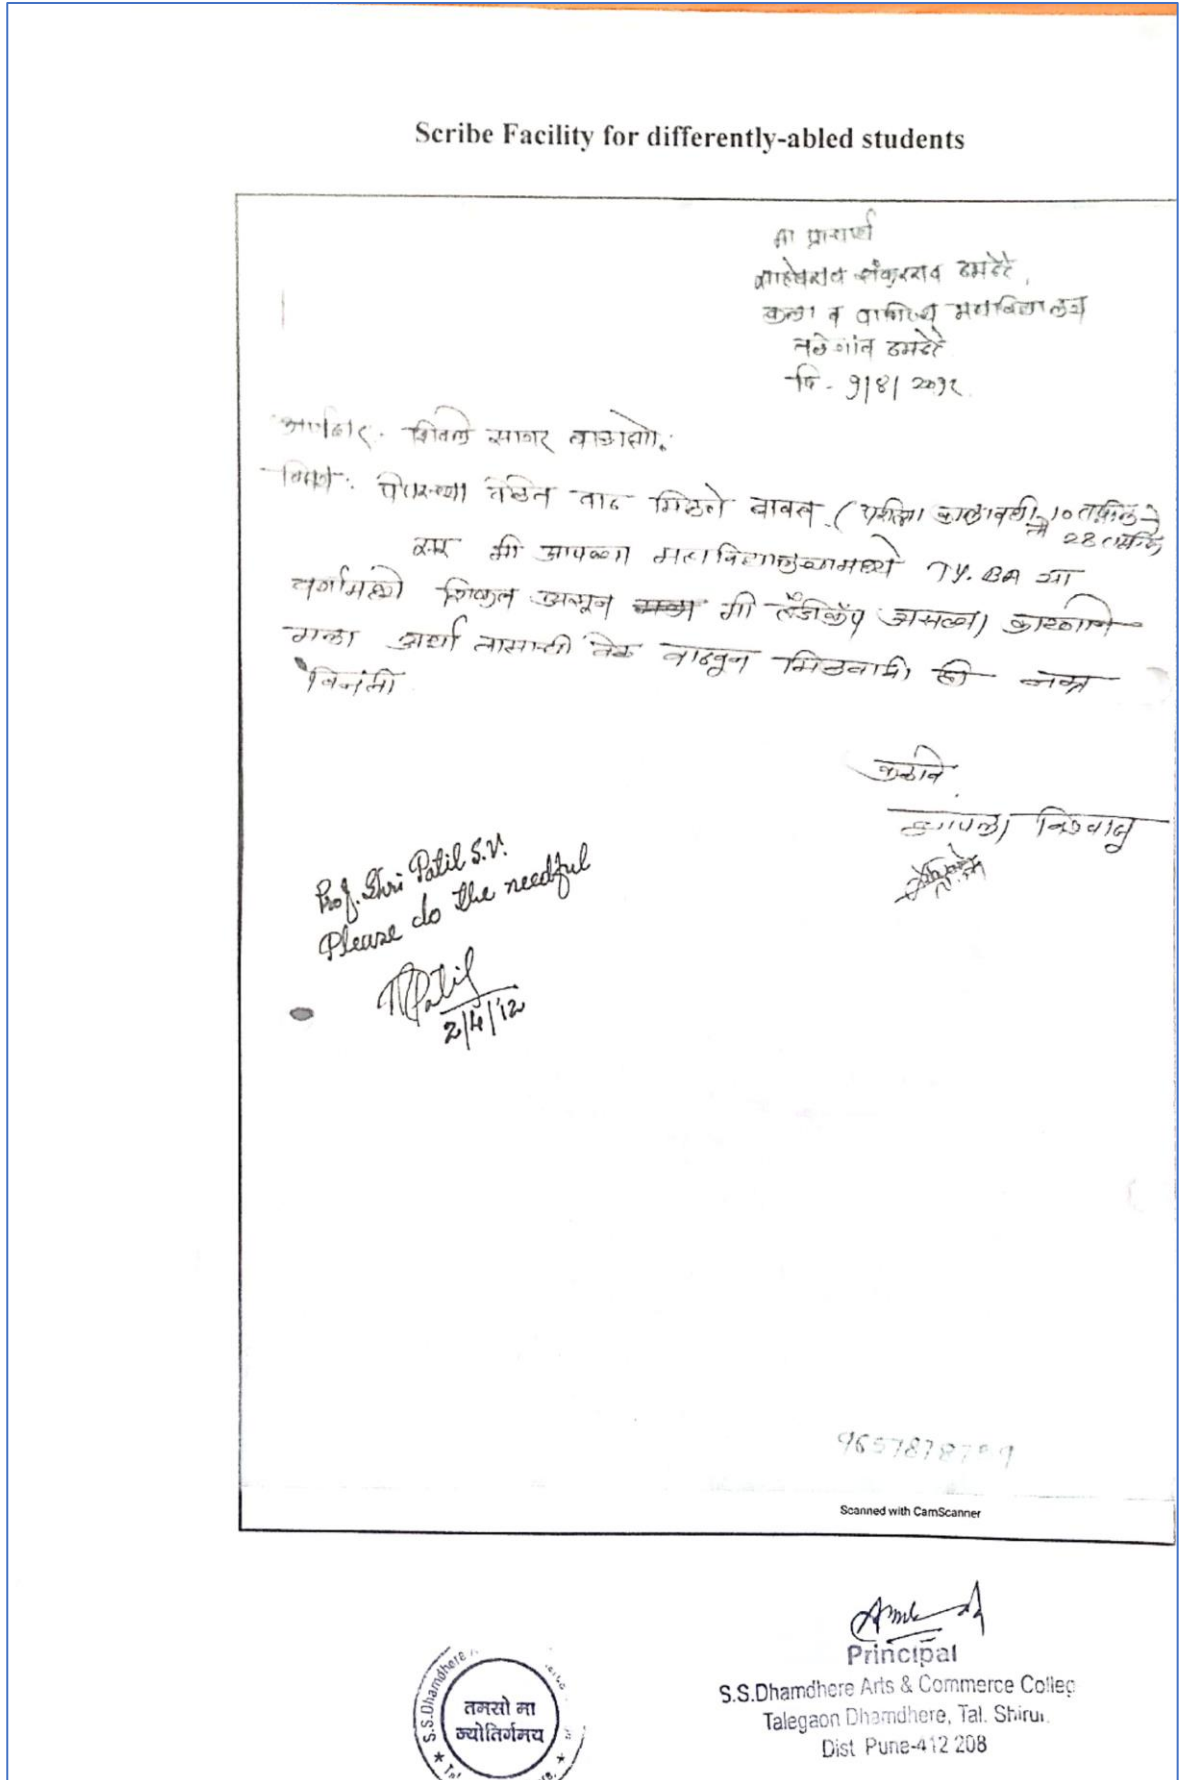 Scribe Facility for differently-abled students
मा प्राचार्य
साहेबराव शंकरराव ढमढेरे,
कला व वाणिज्य महाविद्यालय
तळेगांव ढमढेरे
दि. 9/8/2012.
अर्जदार. शिवले सागर बाळासो.
विषय: पेपरच्या वेळेत वाढ मिळणे बाबत. (परीक्षा कालावली 10
28
सर मी आपल्या महाविद्यालयामध्ये TY. BA या
वर्गामध्ये शिकत असून मी हँडीकॅप असल्या कारणाने
मला अर्धा तासाची वेळ वाढवून मिळवामी ही नम्र
विनंती
कळावे.
आपला विश्वासू
Prof. Shri Patil S.V.
Please do the needful
Patil
2/4/12
Scanned with CamScanner
Principal
S.S.Dhamdhere Arts & Commerce Colleg
Talegaon Dhamdhere, Tal. Shirur,
Dist Pune-412 208
S.S.Dhamdhere
तमसो मा
ज्योतिर्गमय